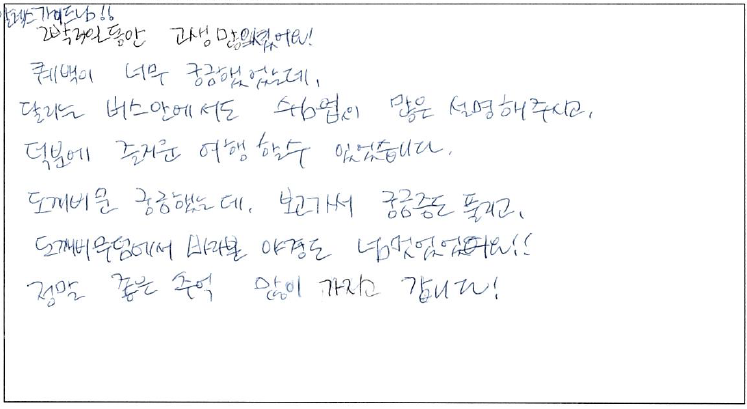 알렉스 가이드님!!
2박3일동안 고생 많으셨어요!
퀘백이 너무 궁금했었는데,
달리는 버스안에서도 쉬임없이 많은 설명해주시고,
덕분에 즐거운 여행 할수 있었습니다.
도깨비문 궁금했는데, 보고가서 궁금증도 풀리고,
도깨비무덤에서 바라본 야경도 넘멋있었어요!!
정말 좋은 추억 많이 가지고 갑니다!